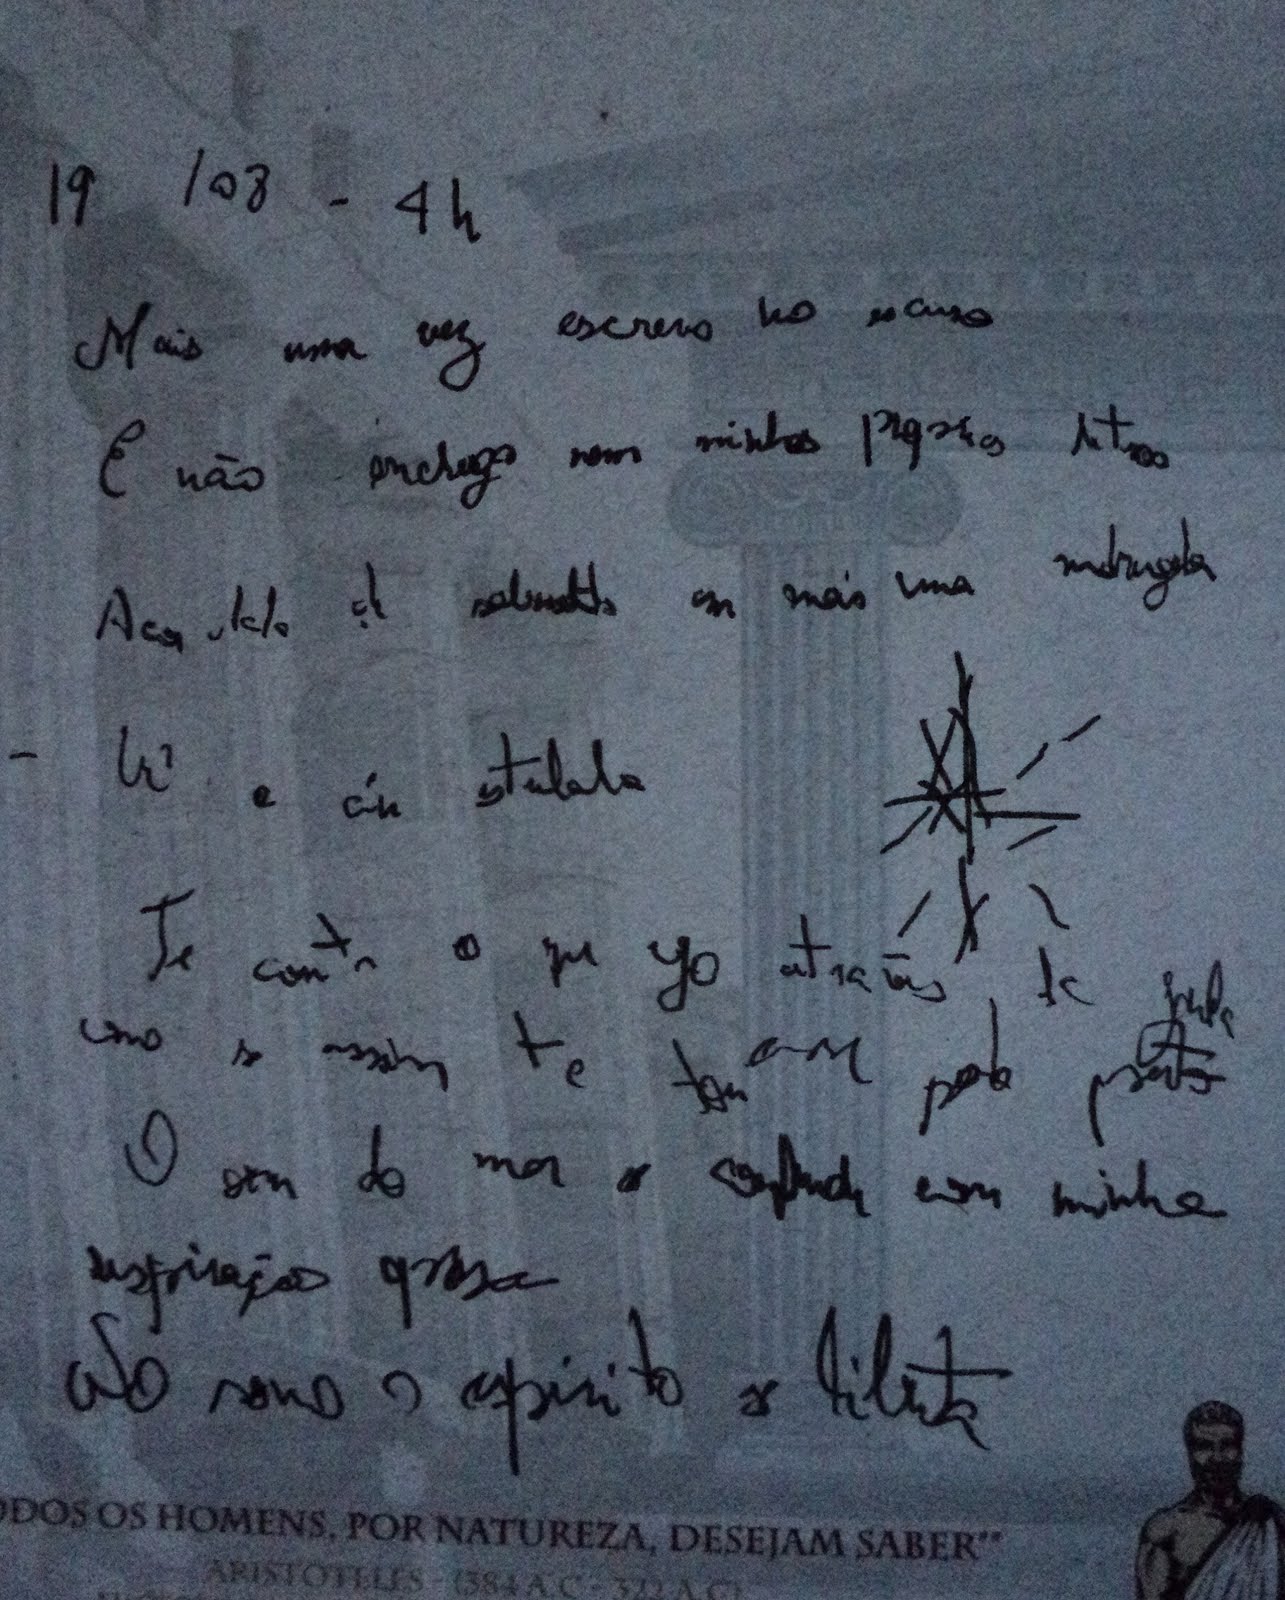 19 /08 - 4h
Mais uma vez escrevo no escuro
E não enchergo nem minhas próprias letras
de em mais uma madrugada
- e céu estrelado
Te conto o que vejo através da janela
como se assim te para perto
O som do mar se confunde com minha
respiração grossa
No sono o espírito se liberta
ODOS OS HOMENS, POR NATUREZA, DESEJAM SABER"
ARISTÓTELES - (384 A.C - 322 A.C)